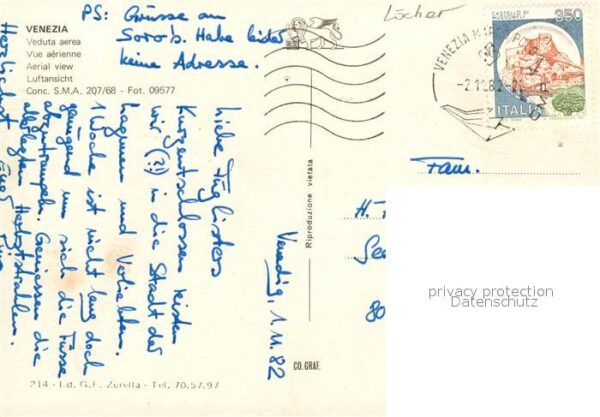 VENEZIA
Veduta aerea
Vue aérienne
Aerial view
Luftansicht
Conc. S.M.A. 207/68 - Fot. 09577
PS: Grüsse an
Sorob. Habe leider
keine Adresse.
Löcher
350
ITALIA
VENEZIA
Venedig, 1.11.82
Liebe Füglisters
Kurzentschlossen reisten
wir (2!) in die Stadt der
Lagunen und Verliebten.
1 Woche ist nicht lang doch
genügend um sich die Füsse
abzutrampeln. Geniessen die
allerletzten Herbststrahlen.
Herzlichst
Riproduzione vietata
CO. GRAF.
214 - Ed. G.F. Zerella - Tel. 70.57.97
Fam.
H.
80
privacy protection
Datenschutz